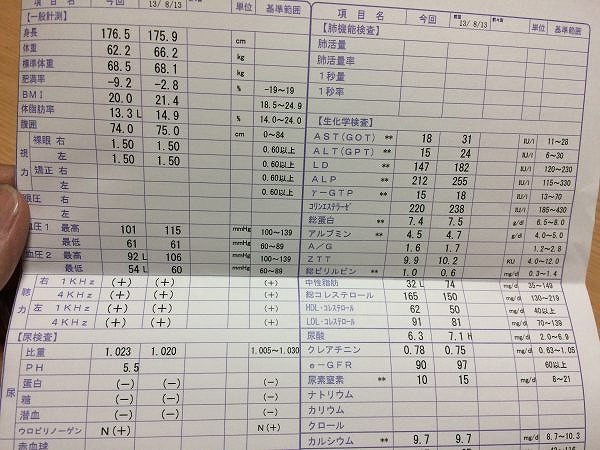 項目名 今回 13/ 8/13 単位 基準範囲
【一般計測】
身長 176.5 175.9 cm
体重 62.2 66.2 kg
標準体重 68.5 68.1 kg
肥満率 -9.2 -2.8 % -19〜19
BMI 20.0 21.4 18.5〜24.9
体脂肪率 13.3 L 14.9 % 14.0〜24.0
腹囲 74.0 75.0 cm 0〜84
視力 裸眼 右 1.50 1.50 0.60以上
左 1.50 1.50 0.60以上
矯正 右 0.60以上
左 0.60以上
眼圧 右
左
血圧1 最高 101 115 mmHg 100〜139
最低 61 61 mmHg 60〜89
血圧2 最高 92 L 106 mmHg 100〜139
最低 54 L 60 mmHg 60〜89
聴力 右 1KHz (+) (+) (+)
4KHz (+) (+) (+)
左 1KHz (+) (+) (+)
4KHz (+) (+) (+)
【尿検査】
尿
比重 1.023 1.020 1.005〜1.030
PH 5.5
蛋白 (-) (-) (-)
糖 (-) (-) (-)
潜血 (-) (-) (-)
ウロビリノーゲン N(+) N(+)
赤血球
項目名 今回 13/ 8/13 単位 基準範囲
【肺機能検査】
肺活量
肺活量率
1秒量
1秒率
【生化学検査】
AST(GOT) ** 18 31 IU/l 11〜28
ALT(GPT) ** 15 24 IU/l 6〜30
LD ** 147 182 IU/l 120〜230
ALP ** 212 255 IU/l 115〜330
γ-GTP ** 15 18 IU/l 13〜70
コリンエステラーゼ 220 238 IU/l 185〜430
総蛋白 ** 7.4 7.5 g/dl 6.5〜8.0
アルブミン ** 4.5 4.7 g/dl 4.0〜5.0
A/G 1.6 1.7 1.2〜2.8
ZTT 9.9 10.2 KU 4.0〜12.0
総ビリルビン ** 1.0 0.6 mg/dl 0.3〜1.4
中性脂肪 32 L 74 mg/dl 35〜149
総コレステロール 165 150 mg/dl 130〜219
HDL-コレステロール 62 50 mg/dl 40以上
LDL-コレステロール 91 81 mg/dl 70〜139
尿酸 6.3 7.1 H mg/dl 2.0〜6.9
クレアチニン 0.78 0.75 mg/dl 0.63〜1.05
e-GFR 90 97 60以上
尿素窒素 ** 10 15 mg/dl 8〜21
ナトリウム
カリウム
クロール
カルシウム ** 9.7 9.7 mg/dl 8.7〜10.3